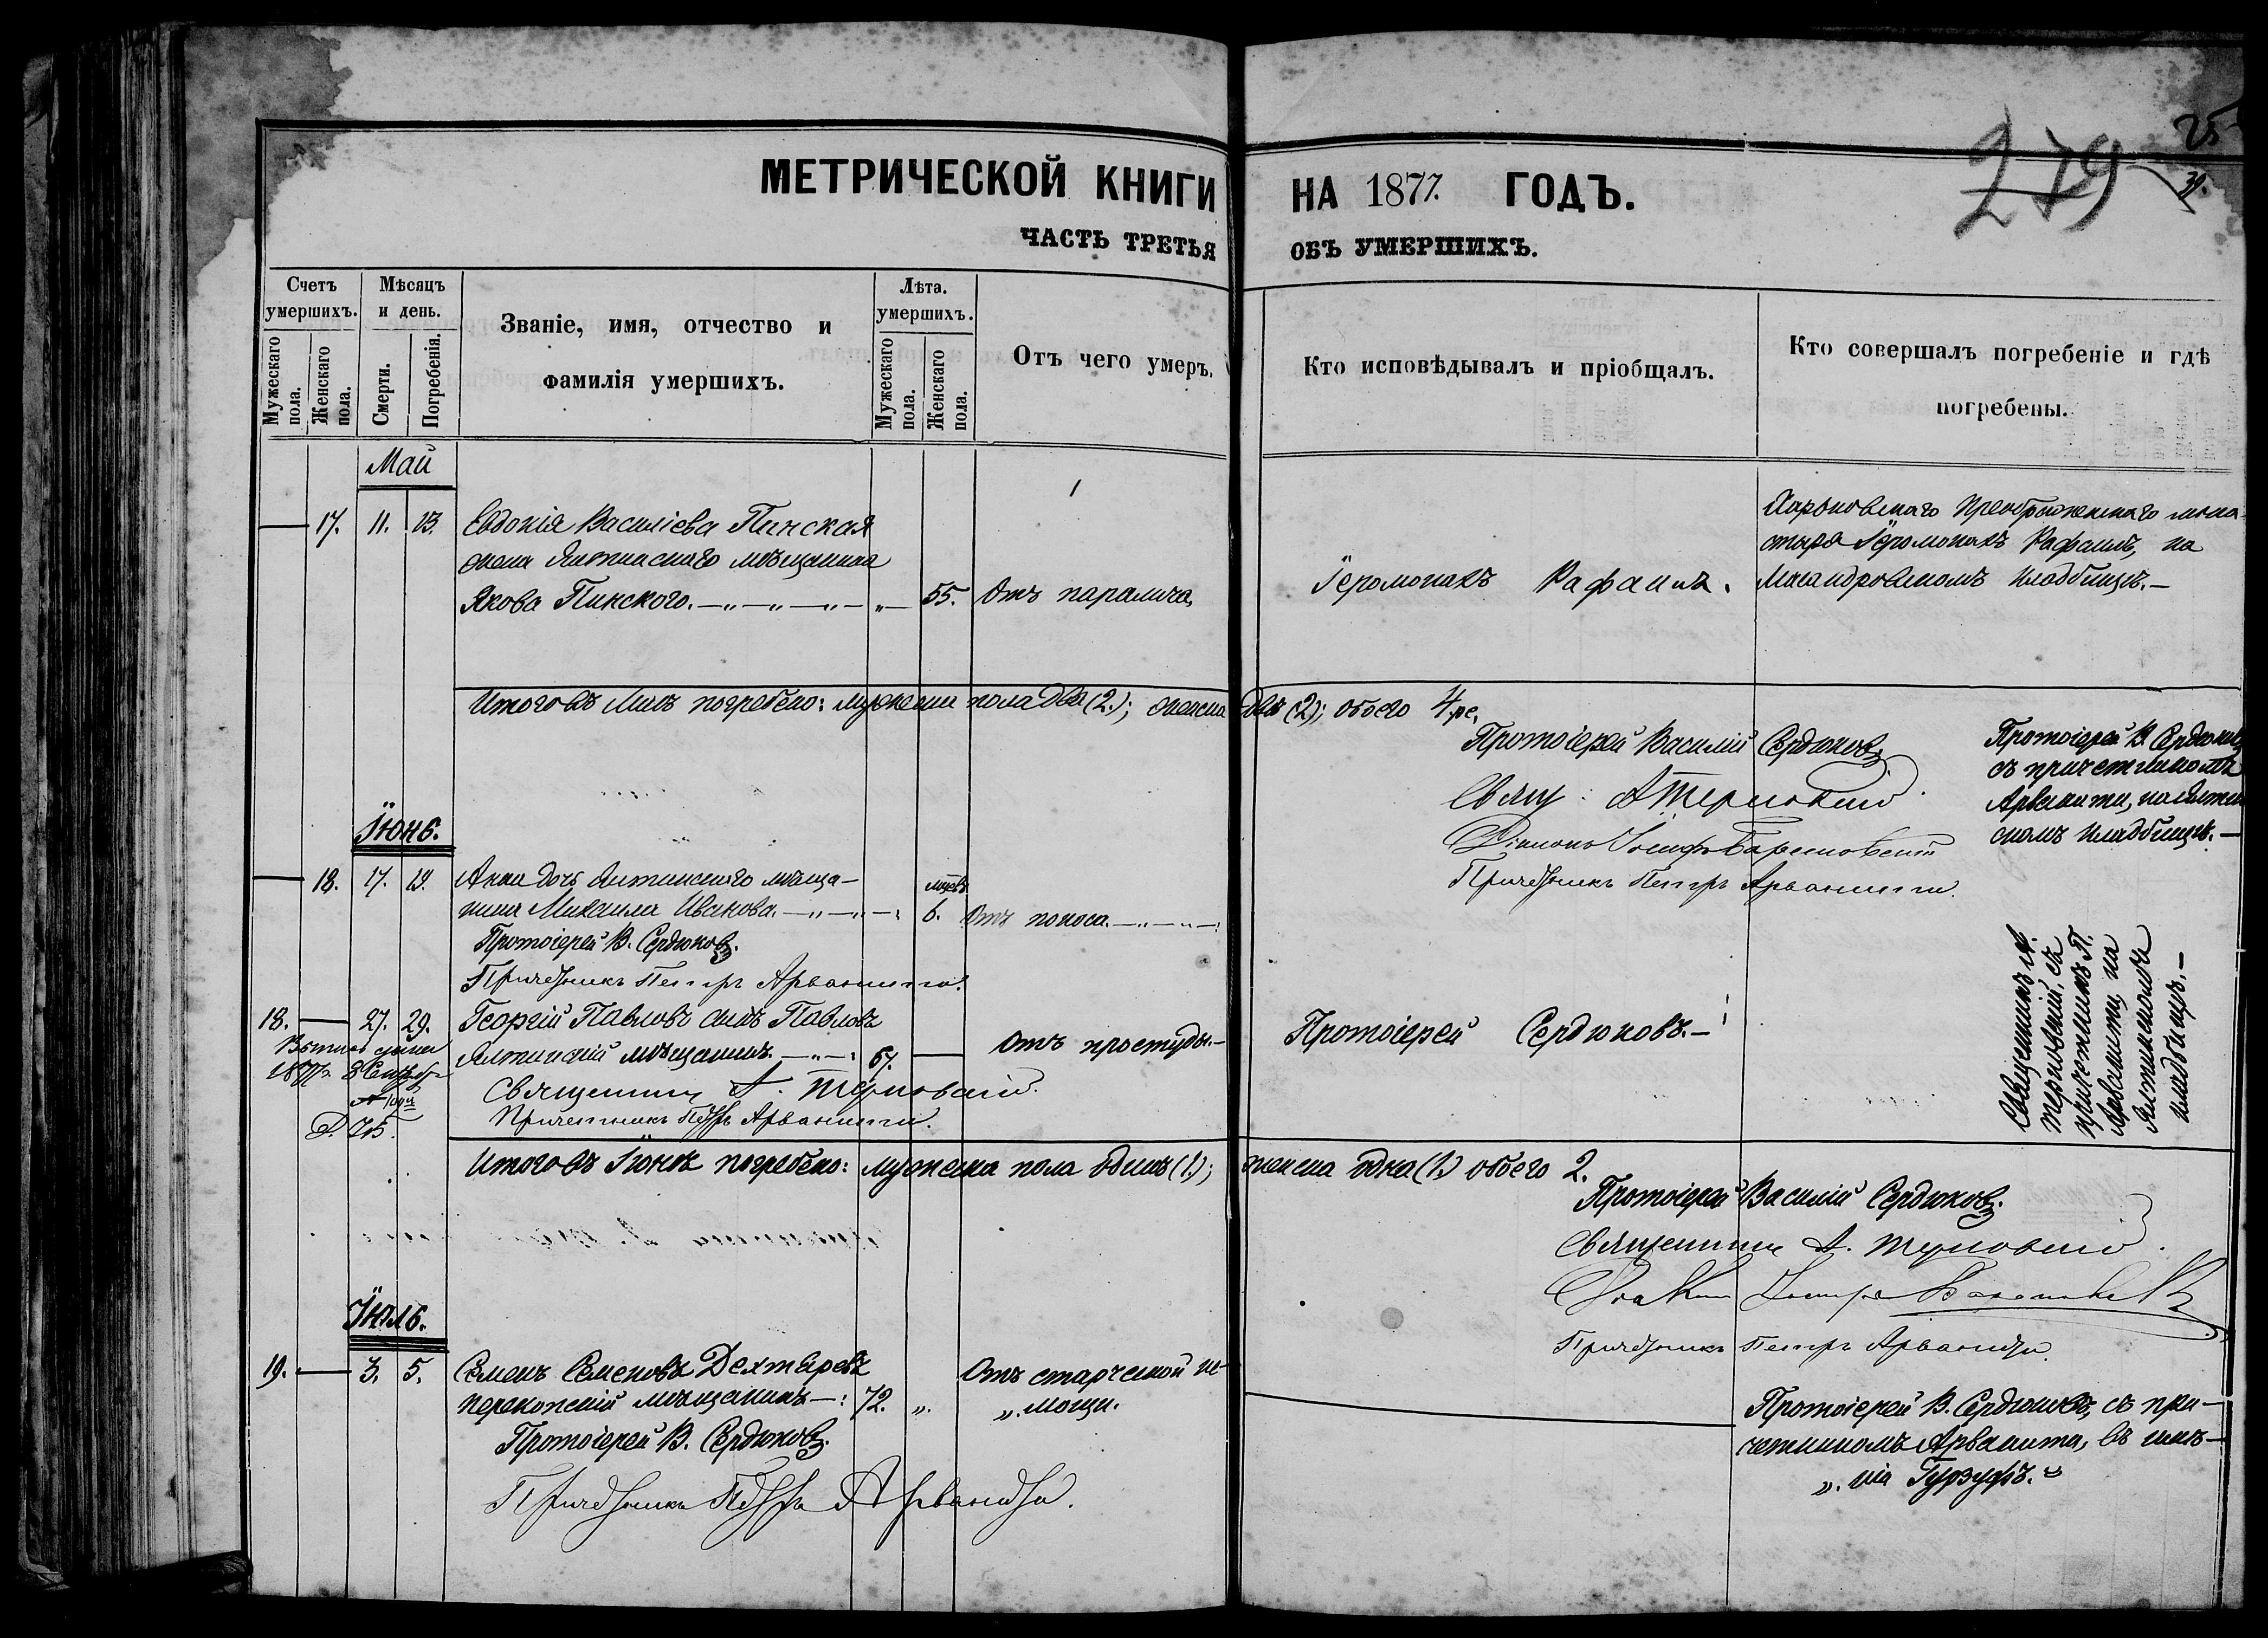 25
279
39.
МЕТРИЧЕСКОЙ КНИГИ НА 1877. ГОДЪ.
ЧАСТЬ ТРЕТЬЯ ОБЪ УМЕРШИХЪ.
Счетъ умершихъ.
Мужескаго пола.
Женскаго пола.
Мѣсяцъ и день.
Смерти.
Погребенія.
Званіе, имя, отчество и
фамилія умершихъ.
Лѣта. умершихъ.
Мужескаго пола.
Женскаго пола.
Отъ чего умеръ.
Кто исповѣдывалъ и пріобщалъ.
Кто совершалъ погребеніе и гдѣ
погребены.
Май
17. 11. 13. Евдокія Василіева Пинская
жена Ялтинскаго мѣщанина
Якова Пинского. 55. Отъ паралича,
Іеромонахъ Рафаилъ.
Харьковскаго Преображенскаго мона-
стыря Іеромонахъ Рафаилъ, на
кладбищѣ.—
Итого въ Маѣ погребено: мужеска пола два (2.); женска двѣ (2); обоего 4-ре,
Протоіерей Василій Сердюковъ
Свящ: А Терновскій
Діаконъ Іосифъ
Причетникъ Петръ Арванити.
Іюнь.
18. 17. 19. Анна дочь Ялтинскаго мѣща-
нина Михаила Иванова. мѣсяц. 6. Отъ поноса.
Протоіерей В. Сердюковъ.
Причетникъ Петръ Арванити.
Протоіерей В. Сердюковъ
съ причетникомъ
Арванити, на Ялтин
скомъ кладбищѣ.—
18. 27. 29. Георгій Павловъ сынъ Павловъ
Ялтинскій мѣщанинъ. 67. Отъ простуды.—
Священникъ А. Терновскій.
Причетникъ Петръ Арванити.
Протоіерей Сердюковъ.—
Священникъ А.
Терновскій, съ
причетникомъ П.
Арванити, на
Ялтинскомъ
кладбищѣ.—
Итого въ Іюнѣ погребено: мужеска пола одинъ (1.); женска одна (1.) обоего 2.
Протоіерей Василій Сердюковъ.
Священникъ А. Терновскій.
Причетникъ Петръ Арванити.
Іюль.
19. 3. 5. Семенъ Семеновъ Дехтяревъ
перекопскій мѣщанинъ—: 72. „. Отъ старческой не-
„. мощи.
Протоіерей В. Сердюковъ.
Причетникъ Петръ Арванити.
Протоіерей В. Сердюковъ, съ при-
четникомъ Арванити, въ имѣ-
„. ніи Гурзуфъ.